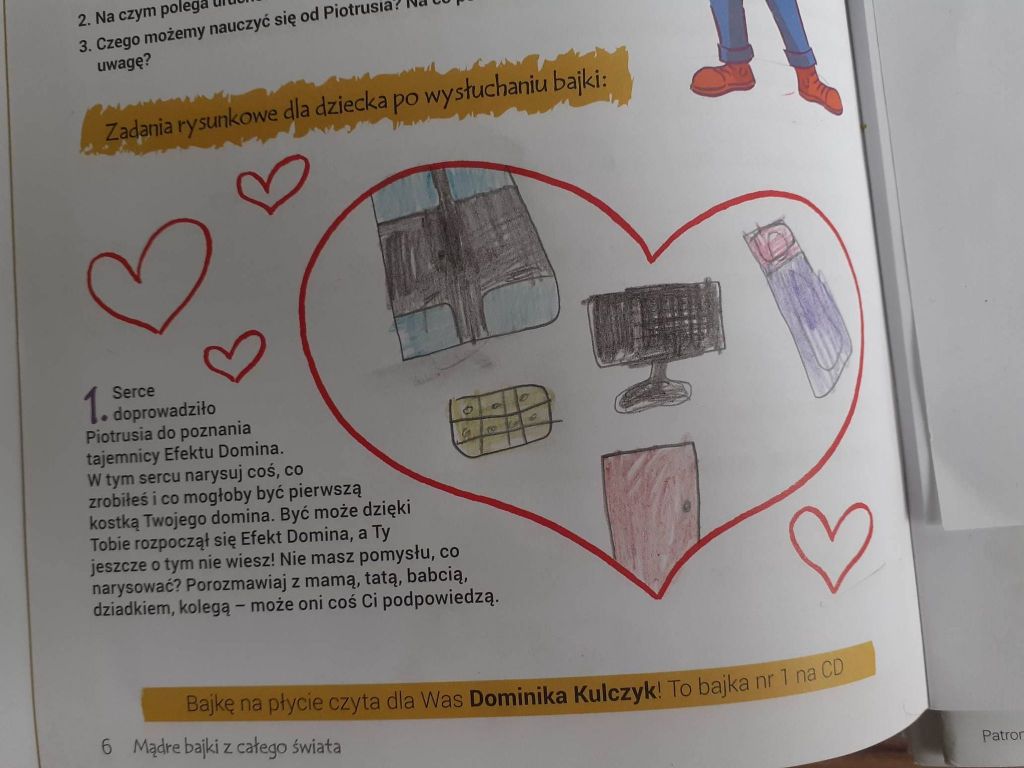 2. Na czym polega
3. Czego możemy nauczyć się od Piotrusia? Na co
uwagę?
Zadania rysunkowe dla dziecka po wysłuchaniu bajki:
1. Serce
doprowadziło
Piotrusia do poznania
tajemnicy Efektu Domina.
W tym sercu narysuj coś, co
zrobiłeś i co mogłoby być pierwszą
kostką Twojego domina. Być może dzięki
Tobie rozpoczął się Efekt Domina, a Ty
jeszcze o tym nie wiesz! Nie masz pomysłu, co
narysować? Porozmawiaj z mamą, tatą, babcią,
dziadkiem, kolegą – może oni coś Ci podpowiedzą.
Bajkę na płycie czyta dla Was Dominika Kulczyk! To bajka nr 1 na CD
6 Mądre bajki z całego świata
Patron